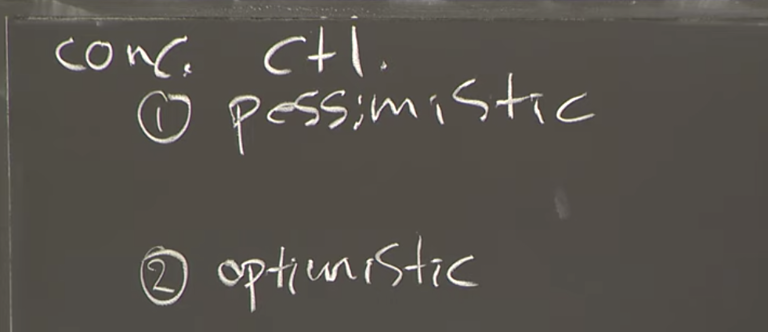 conc. ctl.
① pessimistic
② optimistic